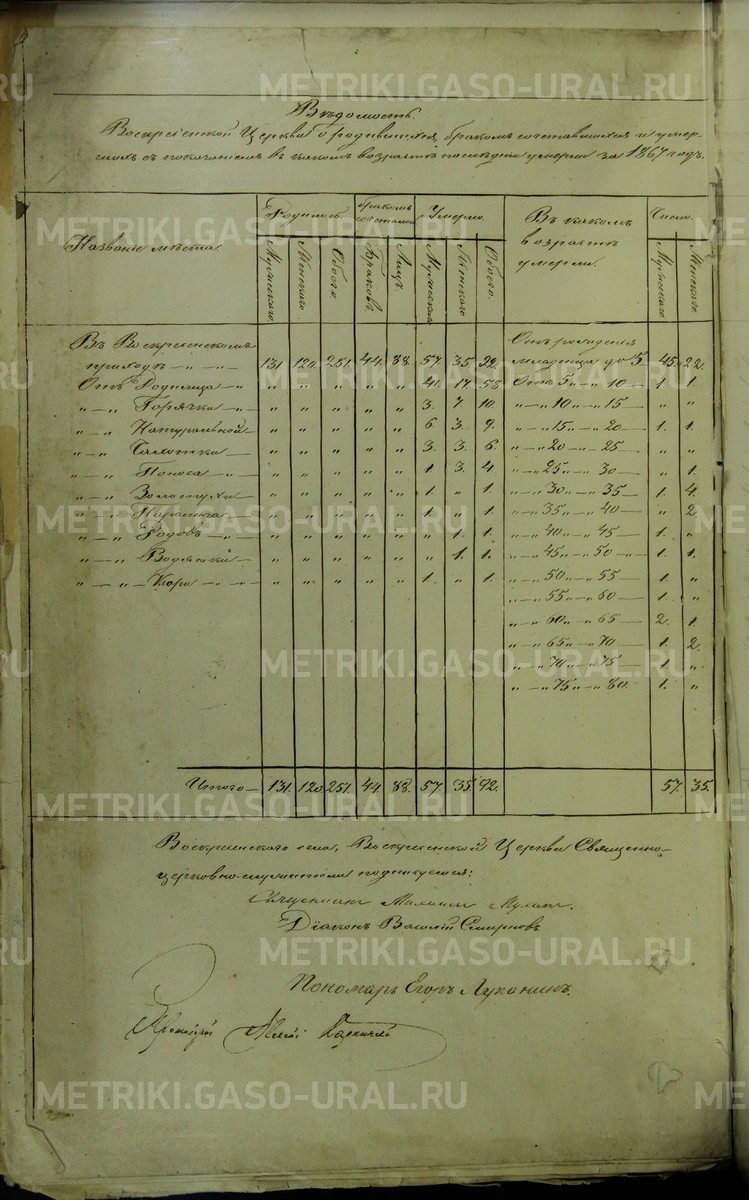 Вѣдомость.
Воскресенской Церкви о родившихся, бракомъ сочетавшихся и умер-
шихъ съ показанiемъ въ какомъ возрастѣ последнiе умерли за 1867 годъ.
Названiе мѣста.
Родилось
бракомъ сочеталось
Умерло.
Въ какомъ возрастѣ умерли.
Число.
Мужескаго. Женскаго. Обоего. Браковъ. Лицъ. Мужескаго. Женскаго. Обоего. Мужескаго. Женскаго.
Въ Воскресенскомъ Отъ рожденiя
приходѣ — „ — „ 131. 120. 251. 44. 88. 57. 35. 92. младенца до 5 45. 22.
Отъ Родимца — „ „ „ „ „ „ 41. 17. 58. Отъ 5 „ — „ 10 — 1. 1.
„ — „ Горячки „ — „ „ „ „ „ 3. 7. 10. „ — „ 10 „ — „ 15 — „ „
„ — „ Натуральной — „ „ „ „ „ 6. 3. 9. „ — „ 15 „ — „ 20 — 1. 1.
„ — „ Чахотки — „ „ „ „ „ 3. 3. 6. „ — „ 20 — „ 25 — „ „
„ — „ Поноса — „ — „ „ „ „ „ 1. 3. 4. „ — „ 25 „ — „ 30 — „ 1.
„ — „ Золотухи — „ „ „ „ „ 1. „ 1. „ — „ 30 „ — „ 35 — 1. 4.
„ — „ Паралича — „ „ „ „ „ 1. „ 1. „ — „ 35 „ — „ 40 — „ 2.
„ — „ Родовъ — „ — „ „ „ „ „ „ 1. 1. „ — „ 40 „ — „ 45 — 1. „
„ — „ Водянки — „ „ „ „ „ „ 1. 1. „ — „ 45 „ — „ 50 — 1. 1.
„ — „ Кори — „ — „ „ „ „ „ 1. „ 1. „ — „ 50 „ — „ 55 — 1. „
„ — „ 55 „ — „ 60 — 1. „
„ — „ 60 „ — „ 65 — 2. 1.
„ — „ 65 „ — „ 70 — 1. 2.
„ — „ 70 „ — „ 75 — 1. „
„ — „ 75 „ — „ 80. 1. „
Итого — 131. 120. 251. 44. 88. 57. 35. 92. 57. 35.
Воскресенскаго села, Воскресенской Церкви Священно-
церковно-служители подписуемся:
Священникъ Михаилъ
Дiаконъ Василiй Смирновъ.
Пономарь Егоръ Луканинъ.
METRIKI.GASO-URAL.RU